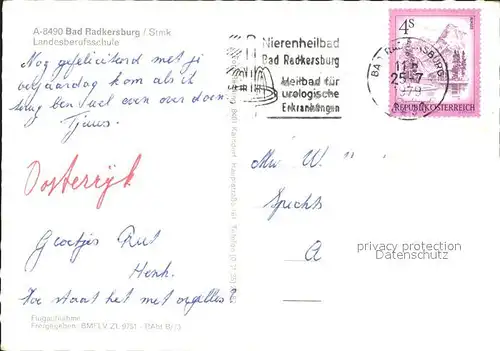 A-8490 Bad Radkersburg / Stmk
Landesberufsschule
Nog gefeliciteerd met je
verjaardag kom als ik
terug ben wel even over doen.
Tjuus.
Oosterrijk
Groetjes Riet
Henk.
Hoe staat het met orgelles?
Flugaufnahme
Freigegeben: BMFLV. Zl. 9751 - RAbt B/73
Nierenheilbad
Bad Radkersburg
Heilbad für
urologische
Erkrankungen
BAD RADKERSBURG
25.-7
1979
4S
REPUBLIK ÖSTERREICH
Mw. W
Spechts
A
privacy protection by
AnsichtskartenVersand.com